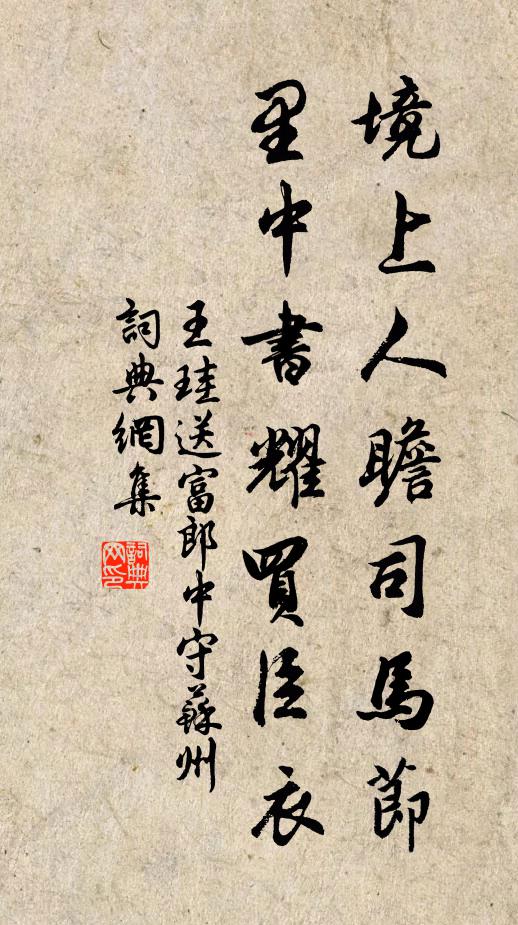 境上人瞻司馬節
里中書耀買臣衣
王珪送富郎中守蘇州
詞典網集
詞典网印